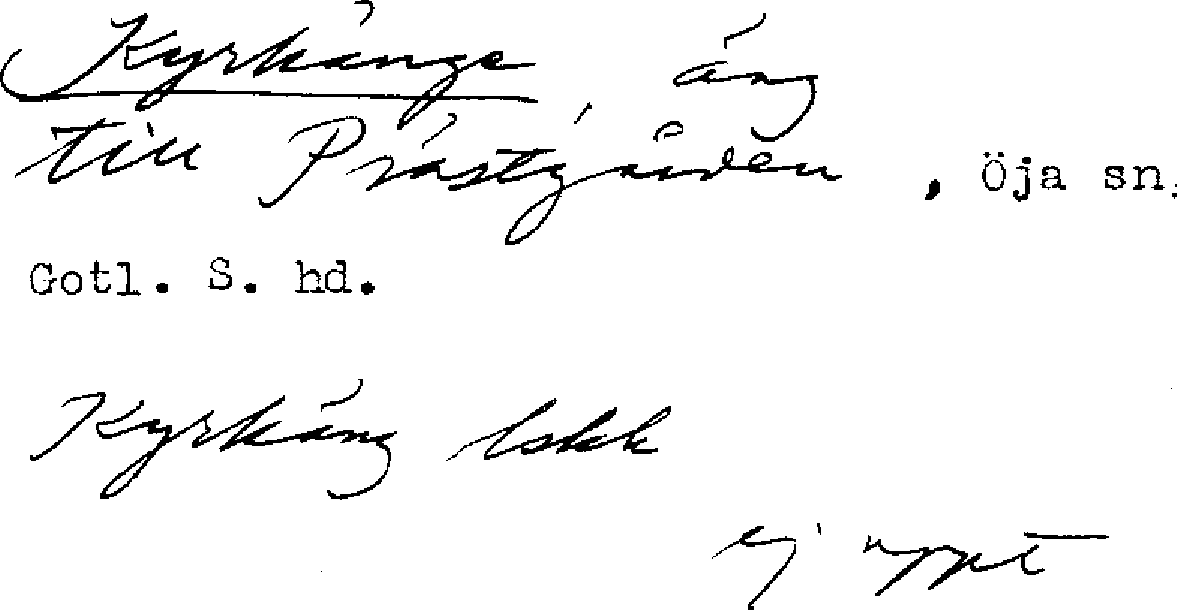 Kyrkänge, äng
till Prästgården, Öja sn.
Gotl. S. hd.
Kyrkäng lskk
ej uppt